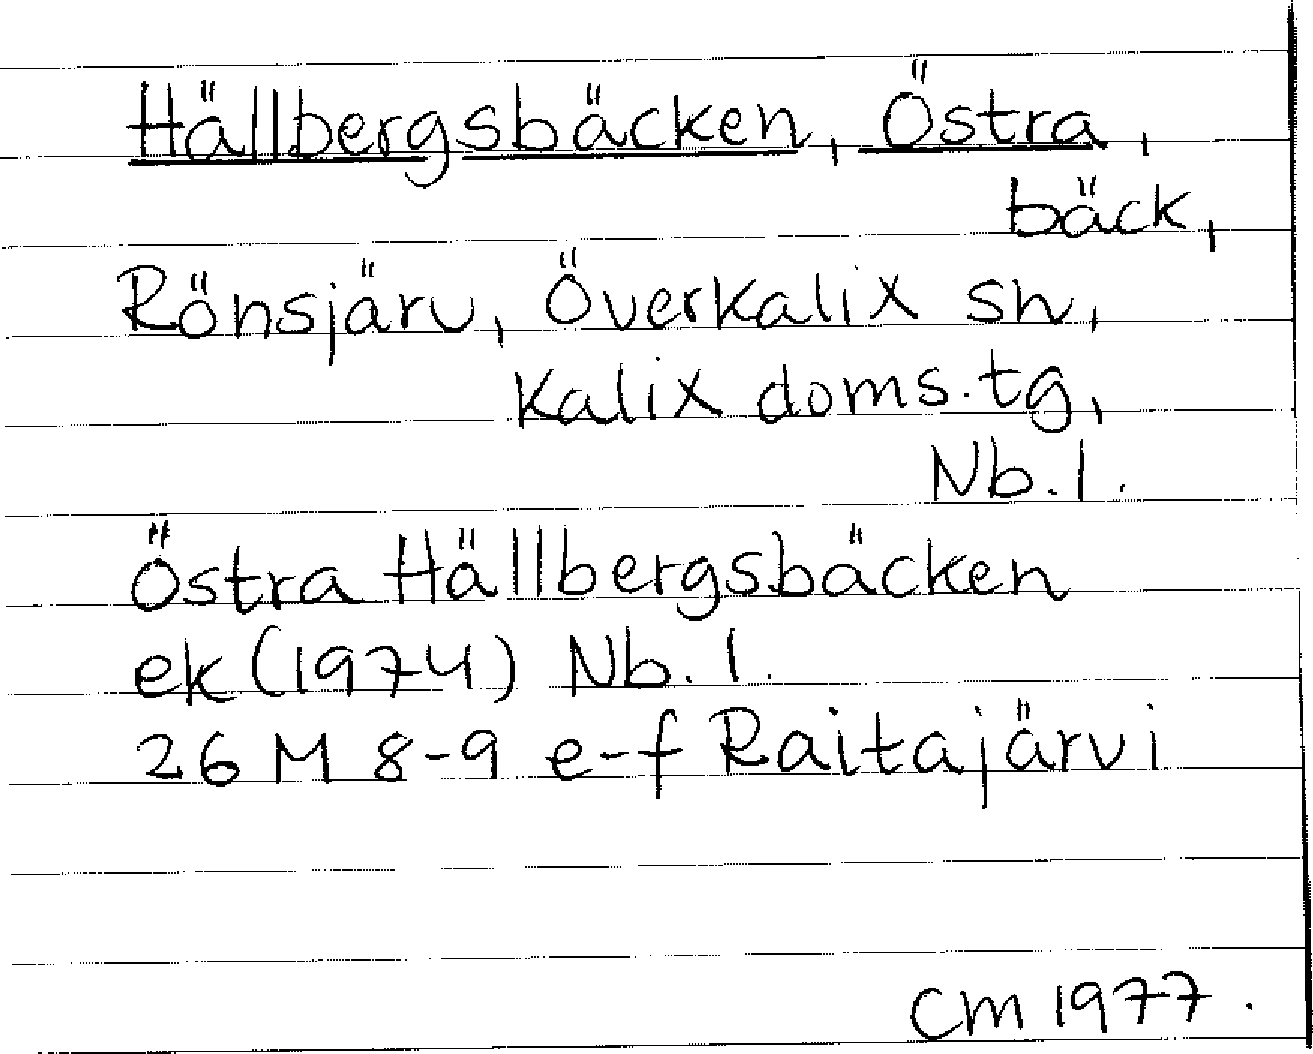 Hällbergsbäcken, Östra,
bäck,
Rönsjärv, Överkalix sn,
Kalix doms.tg,
Nb.l.
Östra Hällbergsbäcken
ek (1974) Nb.l.
26 M 8-9 e-f Raitajärvi
CM 1977.